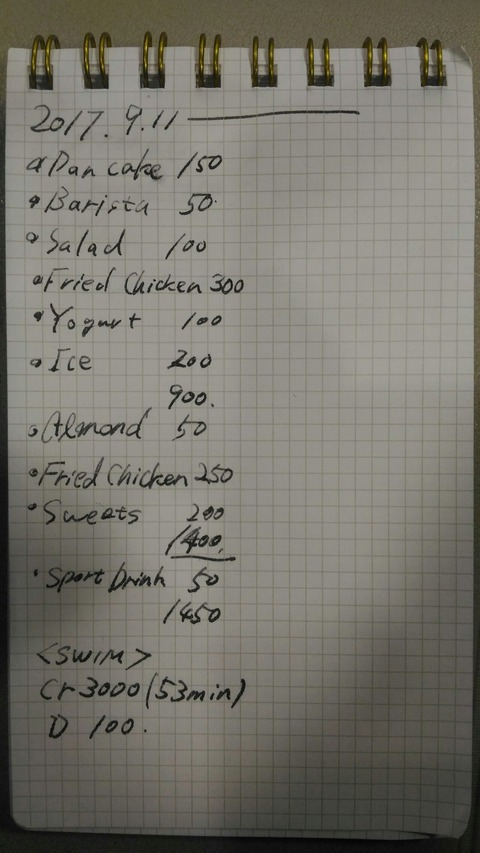 2017.9.11
• Pan cake 150
• Barista 50
• Salad 100
• Fried Chicken 300
• Yogurt 100
• Ice 200
900.
• Almond 50
• Fried Chicken 250
• Sweats 200
1400.
• Sport Drink 50
1450
<SWIM>
Cr 3000 (53min)
D 100.